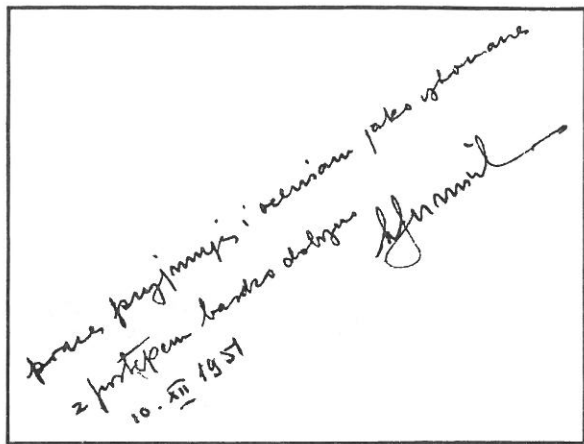 pracę przyjmuję i oceniam jako wykonaną
z postępem bardzo dobrym
10. XII 1951